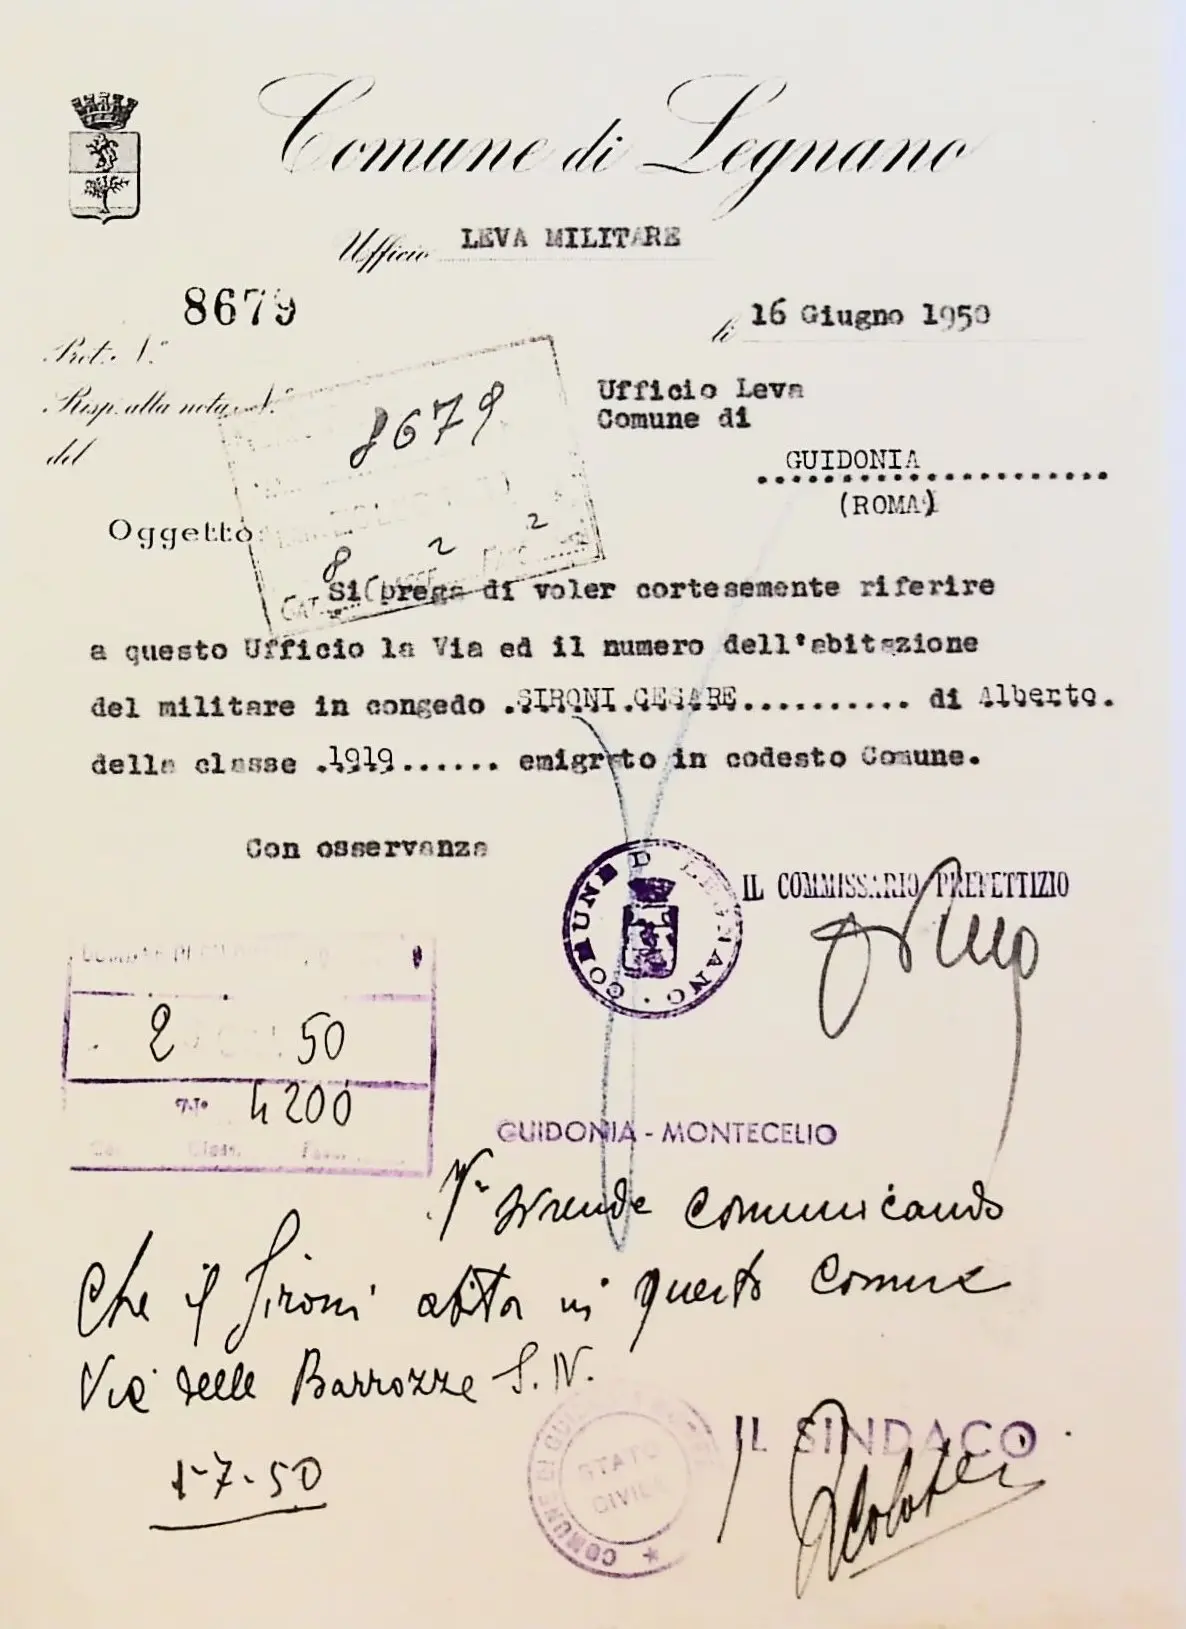 Comune di Legnano
Ufficio LEVA MILITARE
8679
li 16 Giugno 1950
Prot. N.°
Risp. alla nota N.°
del
8679
8 2 2
CAT.
Ufficio Leva
Comune di
GUIDONIA
(ROMA)
Oggetto
Si prega di voler cortesemente riferire
a questo Ufficio la Via ed il numero dell'abitazione
del militare in congedo .SIRONI.CESARE.......... di Alberto.
della classe .1919...... emigrato in codesto Comune.
Con osservanza
COMUNE DI LEGNANO
IL COMMISSARIO PREFETTIZIO
2 50
N° 4200
Cat. Clas. Fasc.
GUIDONIA - MONTECELIO
comunicando
Che il Sironi abita in questo Comune
Via delle Barrozze S.N.
1-7-50
COMUNE DI
STATO
CIVILE
IL SINDACO